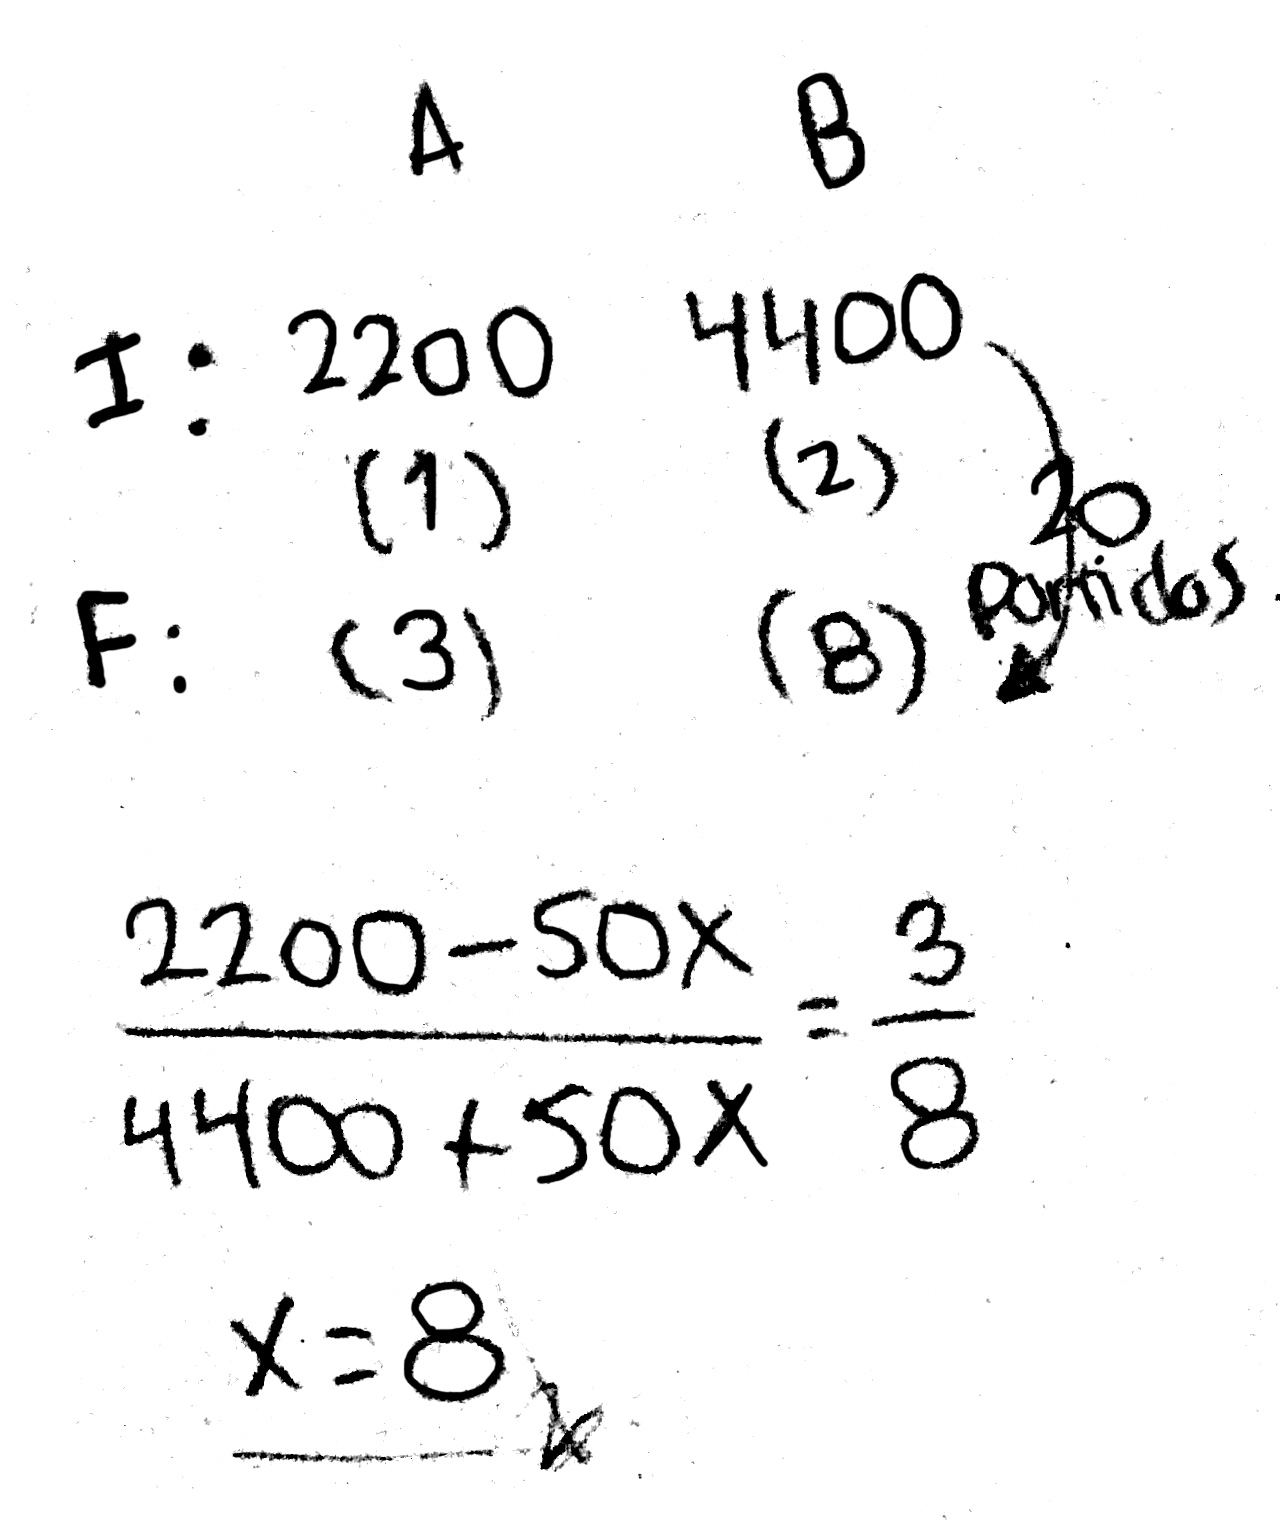 A B
I: 2200 4400
(1) (2)
20
partidas.
F: (3) (8)
2200-50x
=
3
4400+50x
8
x=8